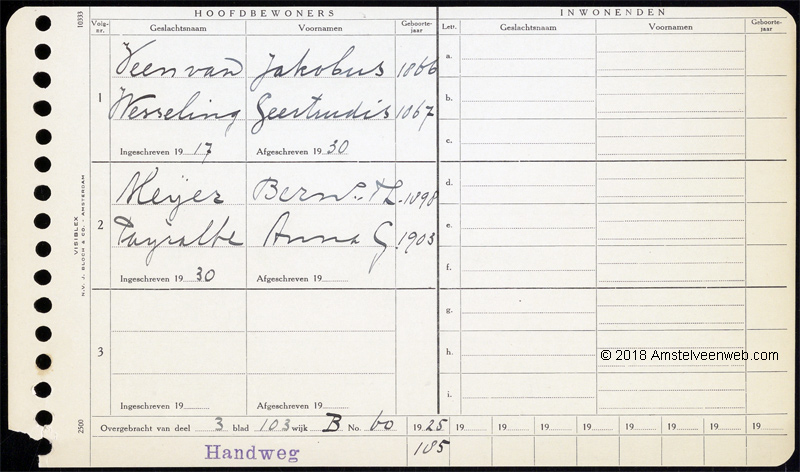 HOOFDBEWONERS
INWONENDEN
Volg-nr. Geslachtsnaam Voornamen Geboorte-jaar Lett. Geslachtsnaam Voornamen Geboorte-jaar
10333
Veen van Jakobus 1866 a.
1 Wesseling Geertrudis 1867 b.
c.
Ingeschreven 19 17 Afgeschreven 19 30
Meijer Bern. Th. 1898 d.
2 Anna G. 1903 e.
f.
Ingeschreven 19 30 Afgeschreven 19
g.
3 h.
© 2018 Amstelveenweb.com
i.
Ingeschreven 19 Afgeschreven 19
VISIBLEX
N.V. J. BLOCH & CO. - AMSTERDAM
2500
Overgebracht van deel 3 blad 103 wijk B No. 60 1925 19 19 19 19 19 19 19 19
Handweg 185